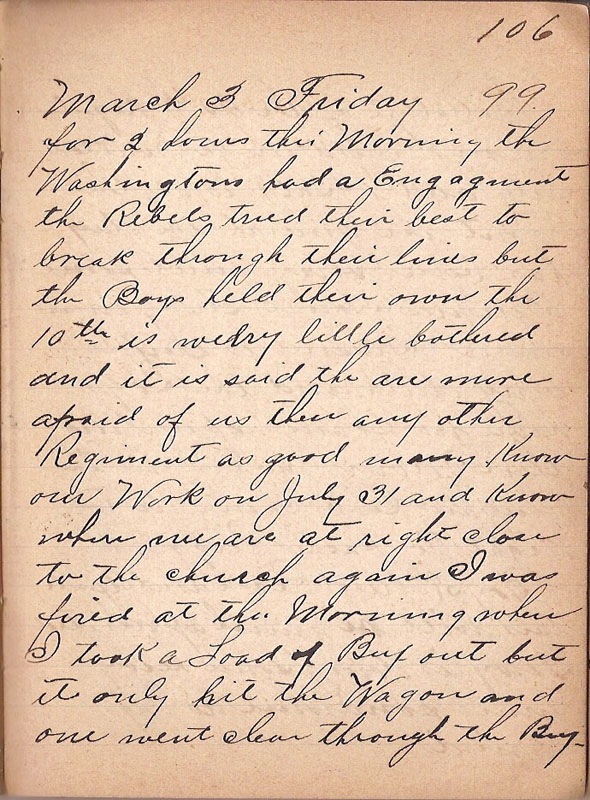 106
March 3 Friday 99.
for 2 hours this Morning the
Washingtons had a Engagment
the Rebels tried their best to
break through their lines but
the Boys held their own the
10th is wedry little bothered
and it is said the are more
afraid of us then any other
Regiment as good many Know
our Work on July 31 and Know
where we are at right close
to the church again I was
fired at this Morning when
I took a Load of Buf out but
it only hit the Wagon and
one went clear through the Buf-